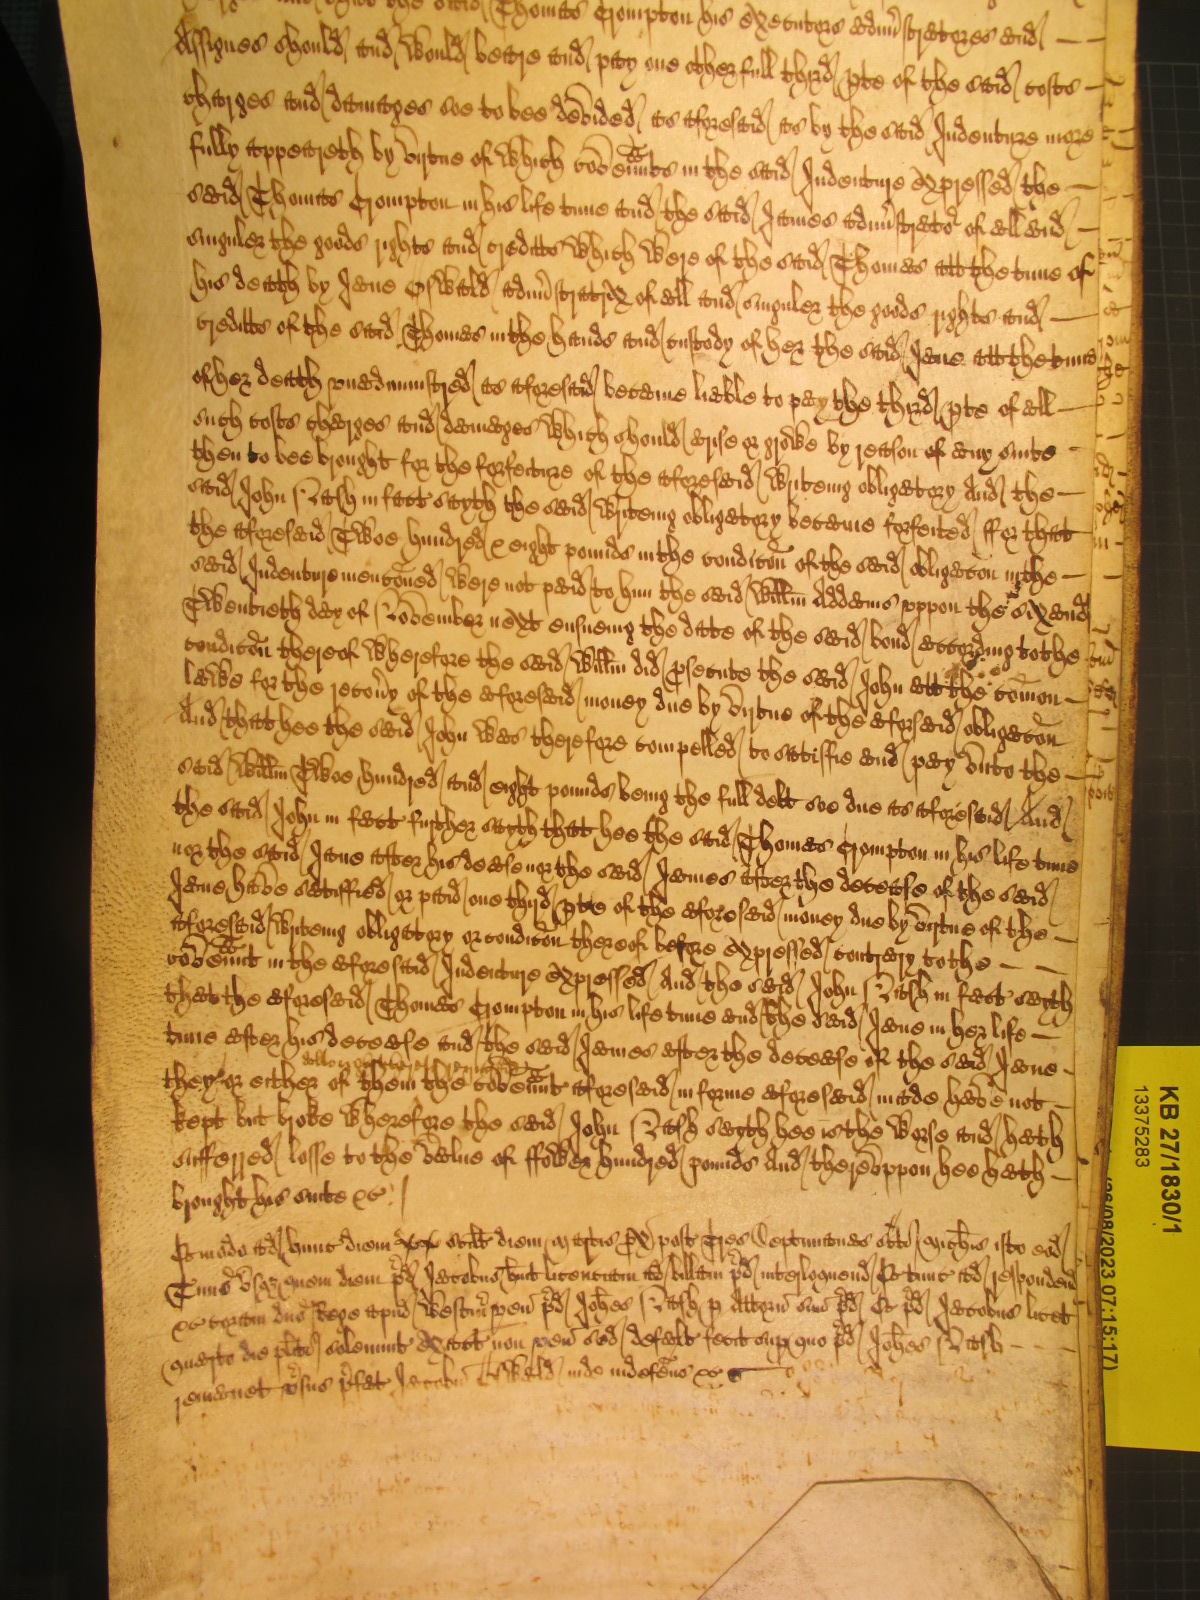 Thomas Crompton his executors adm̄istratores and
Assignes should and would beare and pay one other full third pte of the said costs
charges and damages soe to bee devided as aforesaid as by the said Indenture more
fully appeareth by virtue of which coveñnts in the said Indenture expressed the
said Thomas Crompton in his life time and the said James adm̄istrator of all and
singuler the goods rights and creditts which were of the said Thomas att the time of
his death by Jane Oswald adm̄istratrix of all and singuler the goods rights and
creditts of the said Thomas in the hands and custody of her the said Jane att the time
of her death unadministred as aforesaid became liable to pay the third pte of all
such costs charges and damages which should arise or growe by reason of any suite
then to bee brought for the forfeiture of the aforesaid writeing obligatory And the
said John Nash in fact sayth the said writeing obligatory became forfeited ffor that
the aforesaid Twoe hundred & eight pounds in the condic̄on of the said obligac̄on in the
said Indenture menc̄oned were not paid to him the said Willm̄ Addams uppon the six and
Twentieth day of November next ensueing the date of the said bond according to the
condic̄on thereof Wherefore the said Willm̄ did psecute the said John att the com̄on
lawe for the recov̄y of the aforesaid money due by virtue of the aforsaid obligac̄on
And that hee the said John was therefore compelled to satisfie and pay vnto the
said Willm̄ Twoe hundred and eight pounds being the full debt soe due as aforesaid And
the said John in fact further sayth that hee the said Thomas Crompton in his life time
nor the said Jane after his decease nor the said James after the decease of the said
Jane have satisfied or paid one third pte of the aforesaid money due by virtue of the
aforesaid writeing obligatory or condic̄on thereof before expressed contrary to the
coveñnt in the aforesaid Indenture expressed And the said John Nash in fact sayth
that the aforesaid Thomas Crompton in his life time and the said Jane in her life
time after his decease and the said James after the decease of the said Jane
they or either of them the coveñnt aforesaid in forme aforesaid made have not
kept but broke Wherefore the said John Nash sayth hee is the worse and hath
suffered losse to the value of ffower hundred pounds And thereuppon hee hath
brought his suite &c
Et modo ad hunc diem scilt diem px̄ post Tres Septimanas sc̄i Mich̄is isto eod
Tmino vsqz quem diem p̄d Jacobus huit licentiam ad billam p̄d interloquend Et tunc ad respondend
&c coram dno Rege apud Westm̄ ven p̄d Joh̄es Nash p Attorn suū p̄d Et p̄d Jacobus licet
quarto die pliti solemnit exact non ven sed defalt fecit sup quo p̄d Joh̄es Nash
remanet v̄sus p̄fat Jacobū Oswald inde indefens &c
KB 27/1830/1
13375283
06/08/2023 07:15:17)